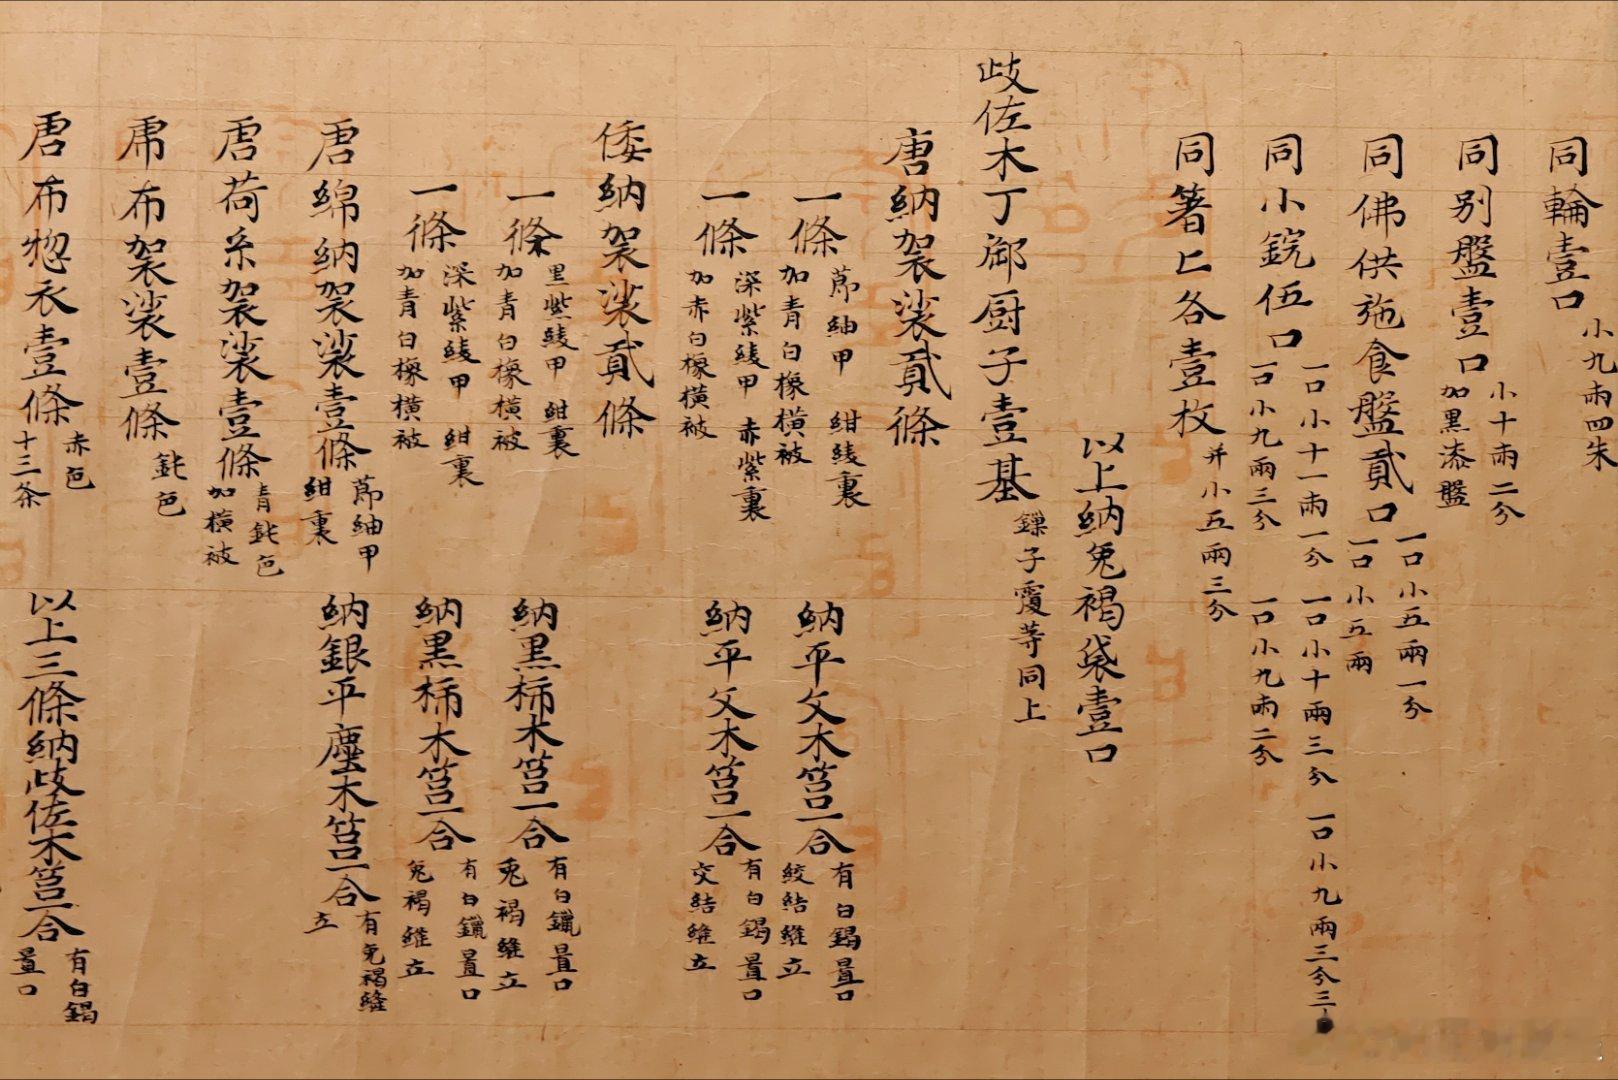 同輪壹口 小九兩四朱
同別盤壹口 小十兩二分 加黑漆盤
同佛供施食盤貳口 一口小五兩一分 一口小五兩
同小鋺伍口 一口小十一兩一分 一口小十兩三分 一口小九兩三分三
一口小九兩三分 一口小九兩二分
同箸匕各壹枚 并小五兩三分
以上納兔褐袋壹口
歧佐木丁厨子壹基 鏁子覆等同上
唐納袈裟貳條
一條 紬甲 紺綾裏 加青白橡橫被 納平文木筥一合 有白鎴壹口 絞結維立
一條 深紫綾甲 赤紫裏 加赤白橡橫被 納平文木筥一合 有白鎴壹口 交結維立
倭納袈裟貳條
一條 黑紫綾甲 紺裏 加青白橡橫被 納黑柿木筥一合 有白鑞壹口 兔褐維立
一條 深紫綾甲 紺裏 加青白橡橫被 納黑柿木筥一合 有白鑞壹口 兔褐維立
唐綿納袈裟壹條 紬甲 紺裏 納銀平塵木筥一合 有兔褐縫立
唐荷糸袈裟壹條 青鈍色 加橫被
布袈裟壹條 鈍色
唐布惣衣壹條 赤色 十三条 以上三條納歧佐木筥一合 有白鎴壹口